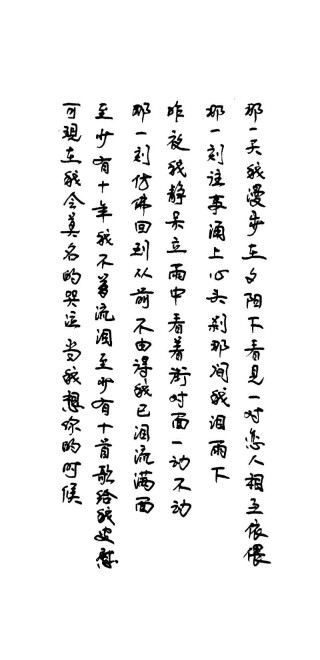 那一天我漫步在夕阳下看见一对恋人相互依偎
那一刻往事涌上心头刹那间我泪雨下
昨夜我静呆立雨中看着街对面一动不动
那一刻仿佛回到从前不由得我已泪流满面
至少有十年我不曾流泪至少有十首歌给我安慰
可现在我会莫名的哭泣当我想你的时候